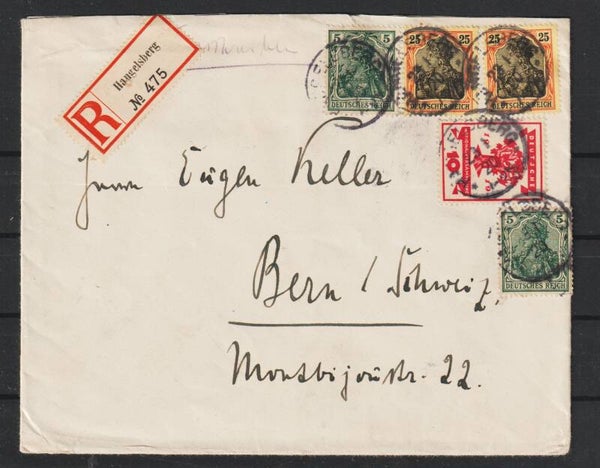 R
Hangelsberg
№ 475
5 5
DEUTSCHES REICH
25 25
DEUTSCHES REICH
25 25
DEUTSCHES REICH
10
5 5
DEUTSCHES REICH
Herrn Eugen Keller
Bern / Schweiz,
Monbijoustr. 22.